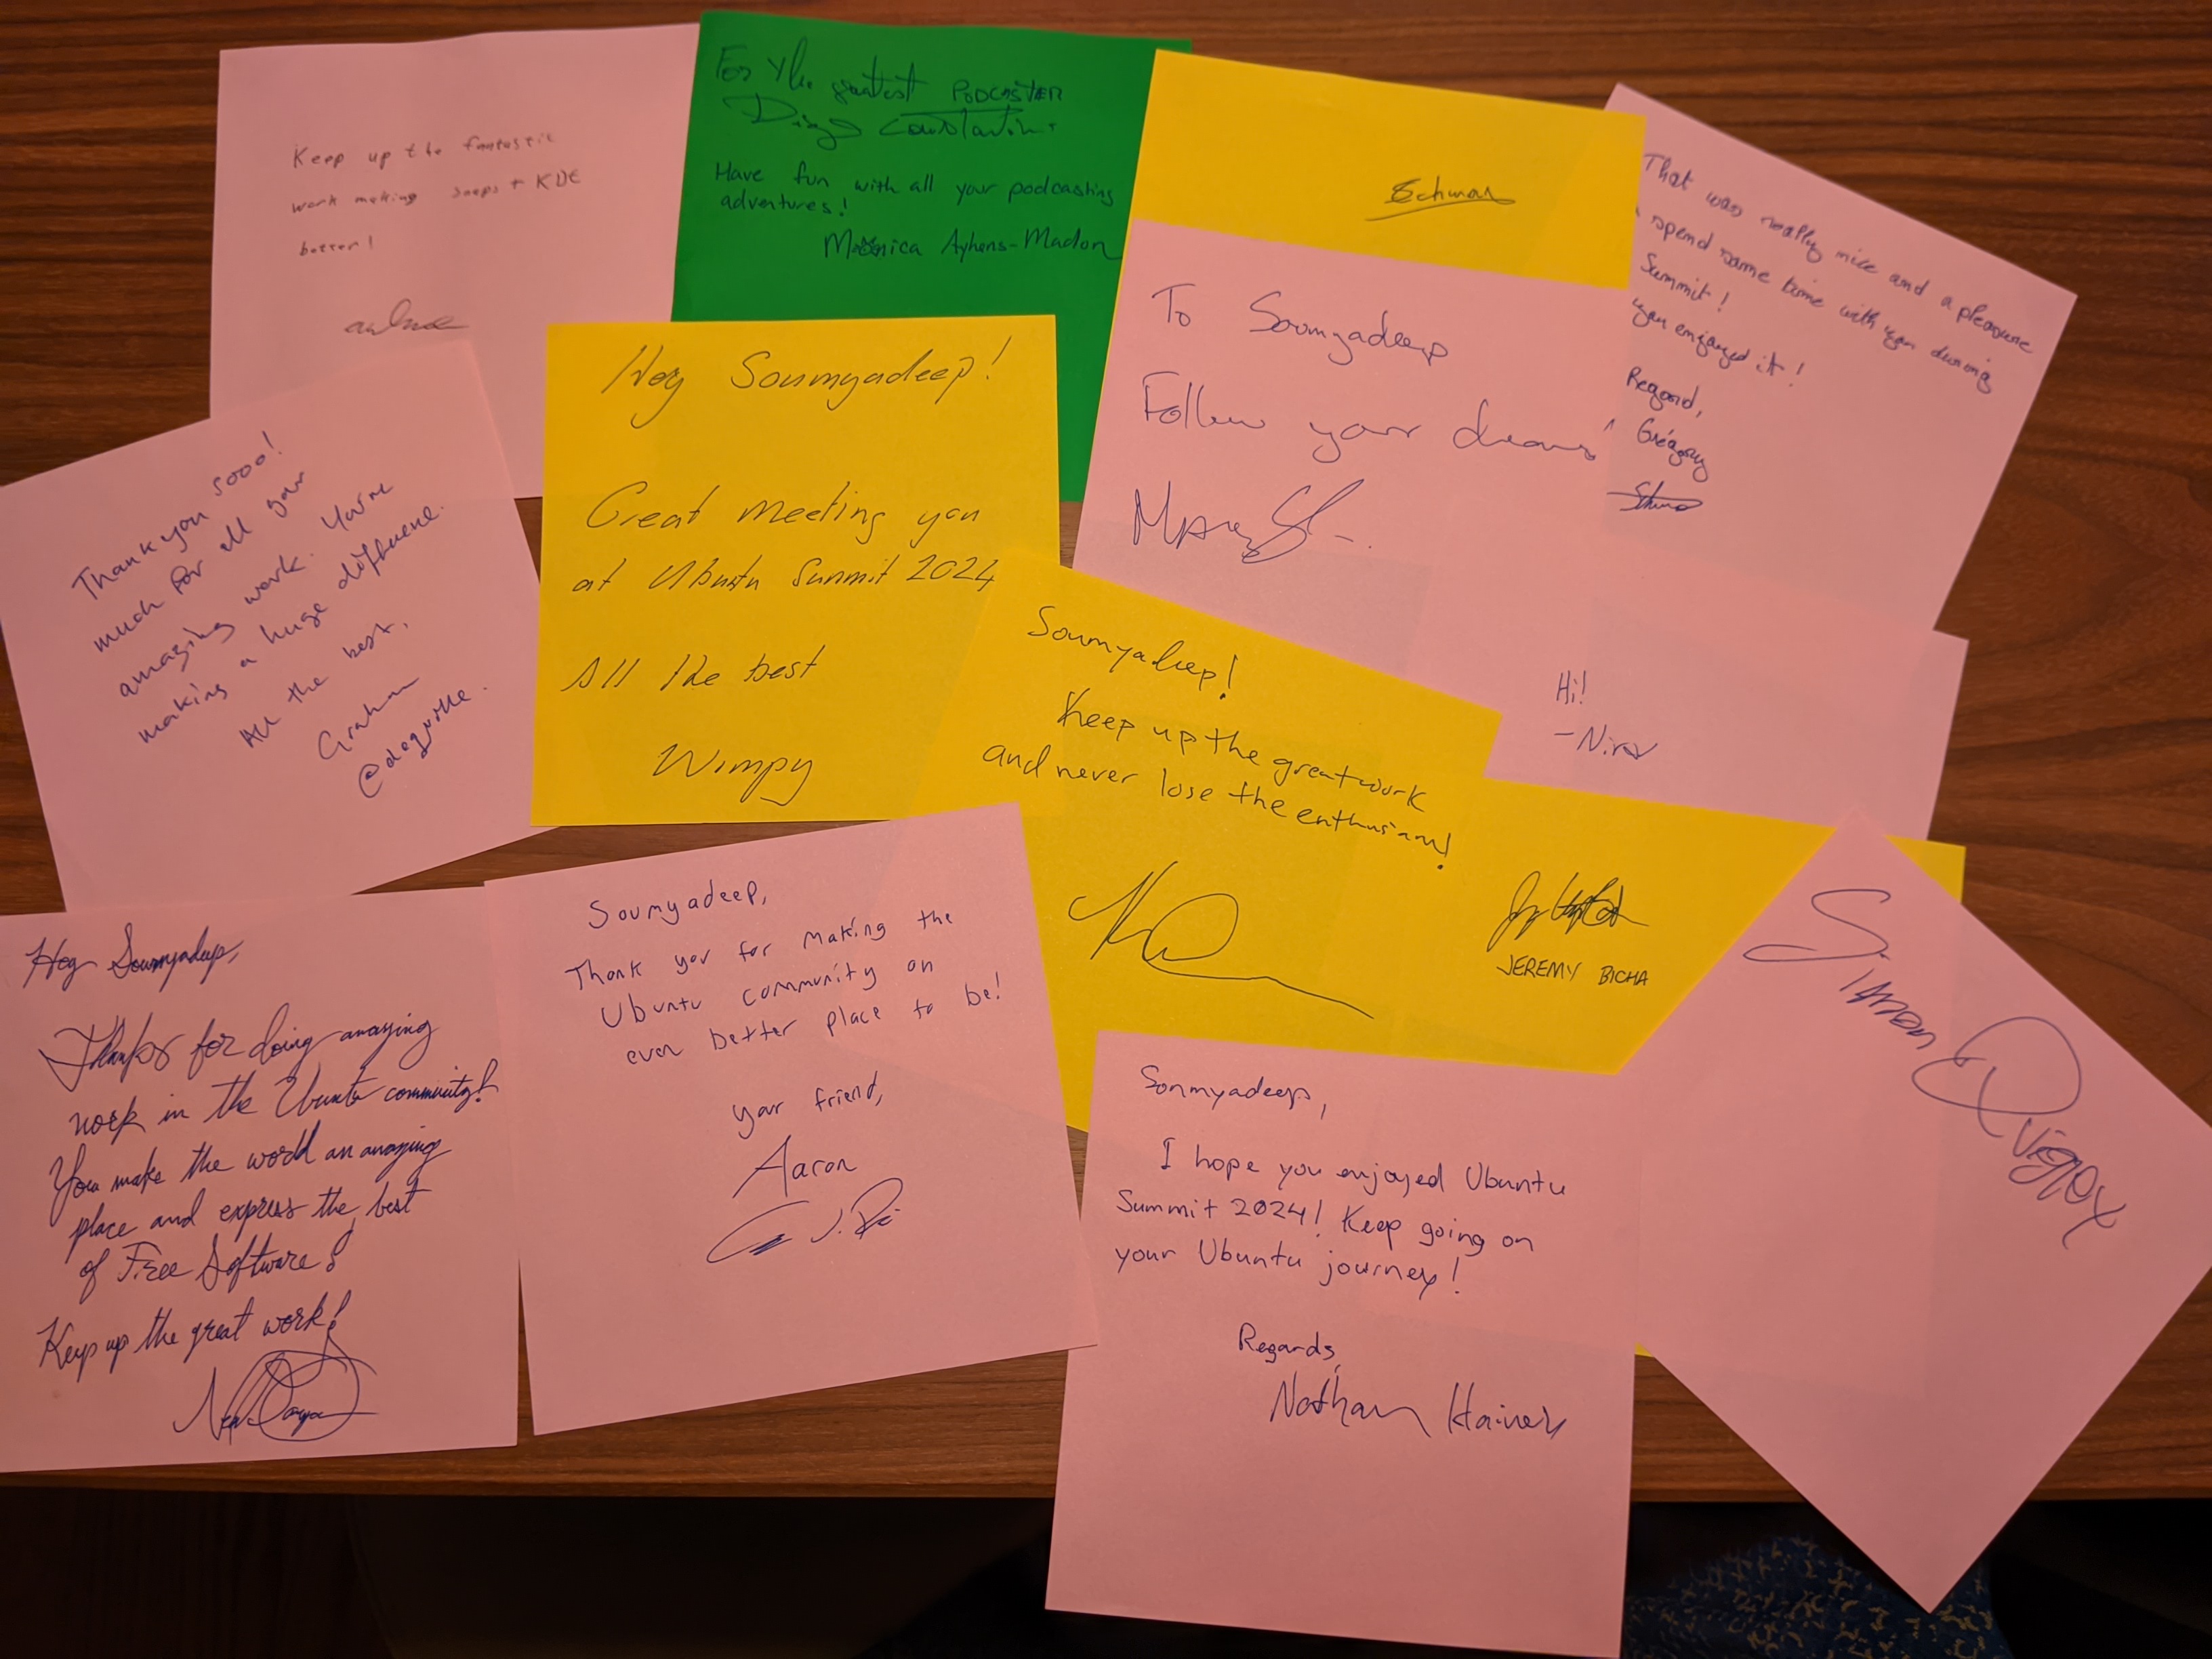 Keep up the fantastic
work making snaps + KDE
better!
For the greatest PODCASTER
Diogo Constantino
Have fun with all your podcasting
adventures!
Monica Ayhens-Madon
That was really nice and a pleasure
spend some time with you during
Summit!
you enjoyed it!
Regard,
Grégory
To Soumyadeep
Follow your dreams
Hey Soumyadeep!
Great meeting you
at Ubuntu Summit 2024
All the best
Wimpy
Thank you sooo!
much for all your
amazing work. You're
making a huge difference.
All the best,
Graham
@degville.
Soumyadeep!
Keep up the great work
and never lose the enthusiasm!
Hi!
- Nirav
JEREMY BICHA
Simon Quigley
Hey Soumyadeep,
Thanks for doing amazing
work in the Ubuntu community!
You make the world an amazing
place and express the best
of Free Software!
Keep up the great work!
Soumyadeep,
Thank you for making the
Ubuntu community an
even better place to be!
your friend,
Aaron
Sonmyadeep,
I hope you enjoyed Ubuntu
Summit 2024! Keep going on
your Ubuntu journey!
Regards,
Nathan Haines